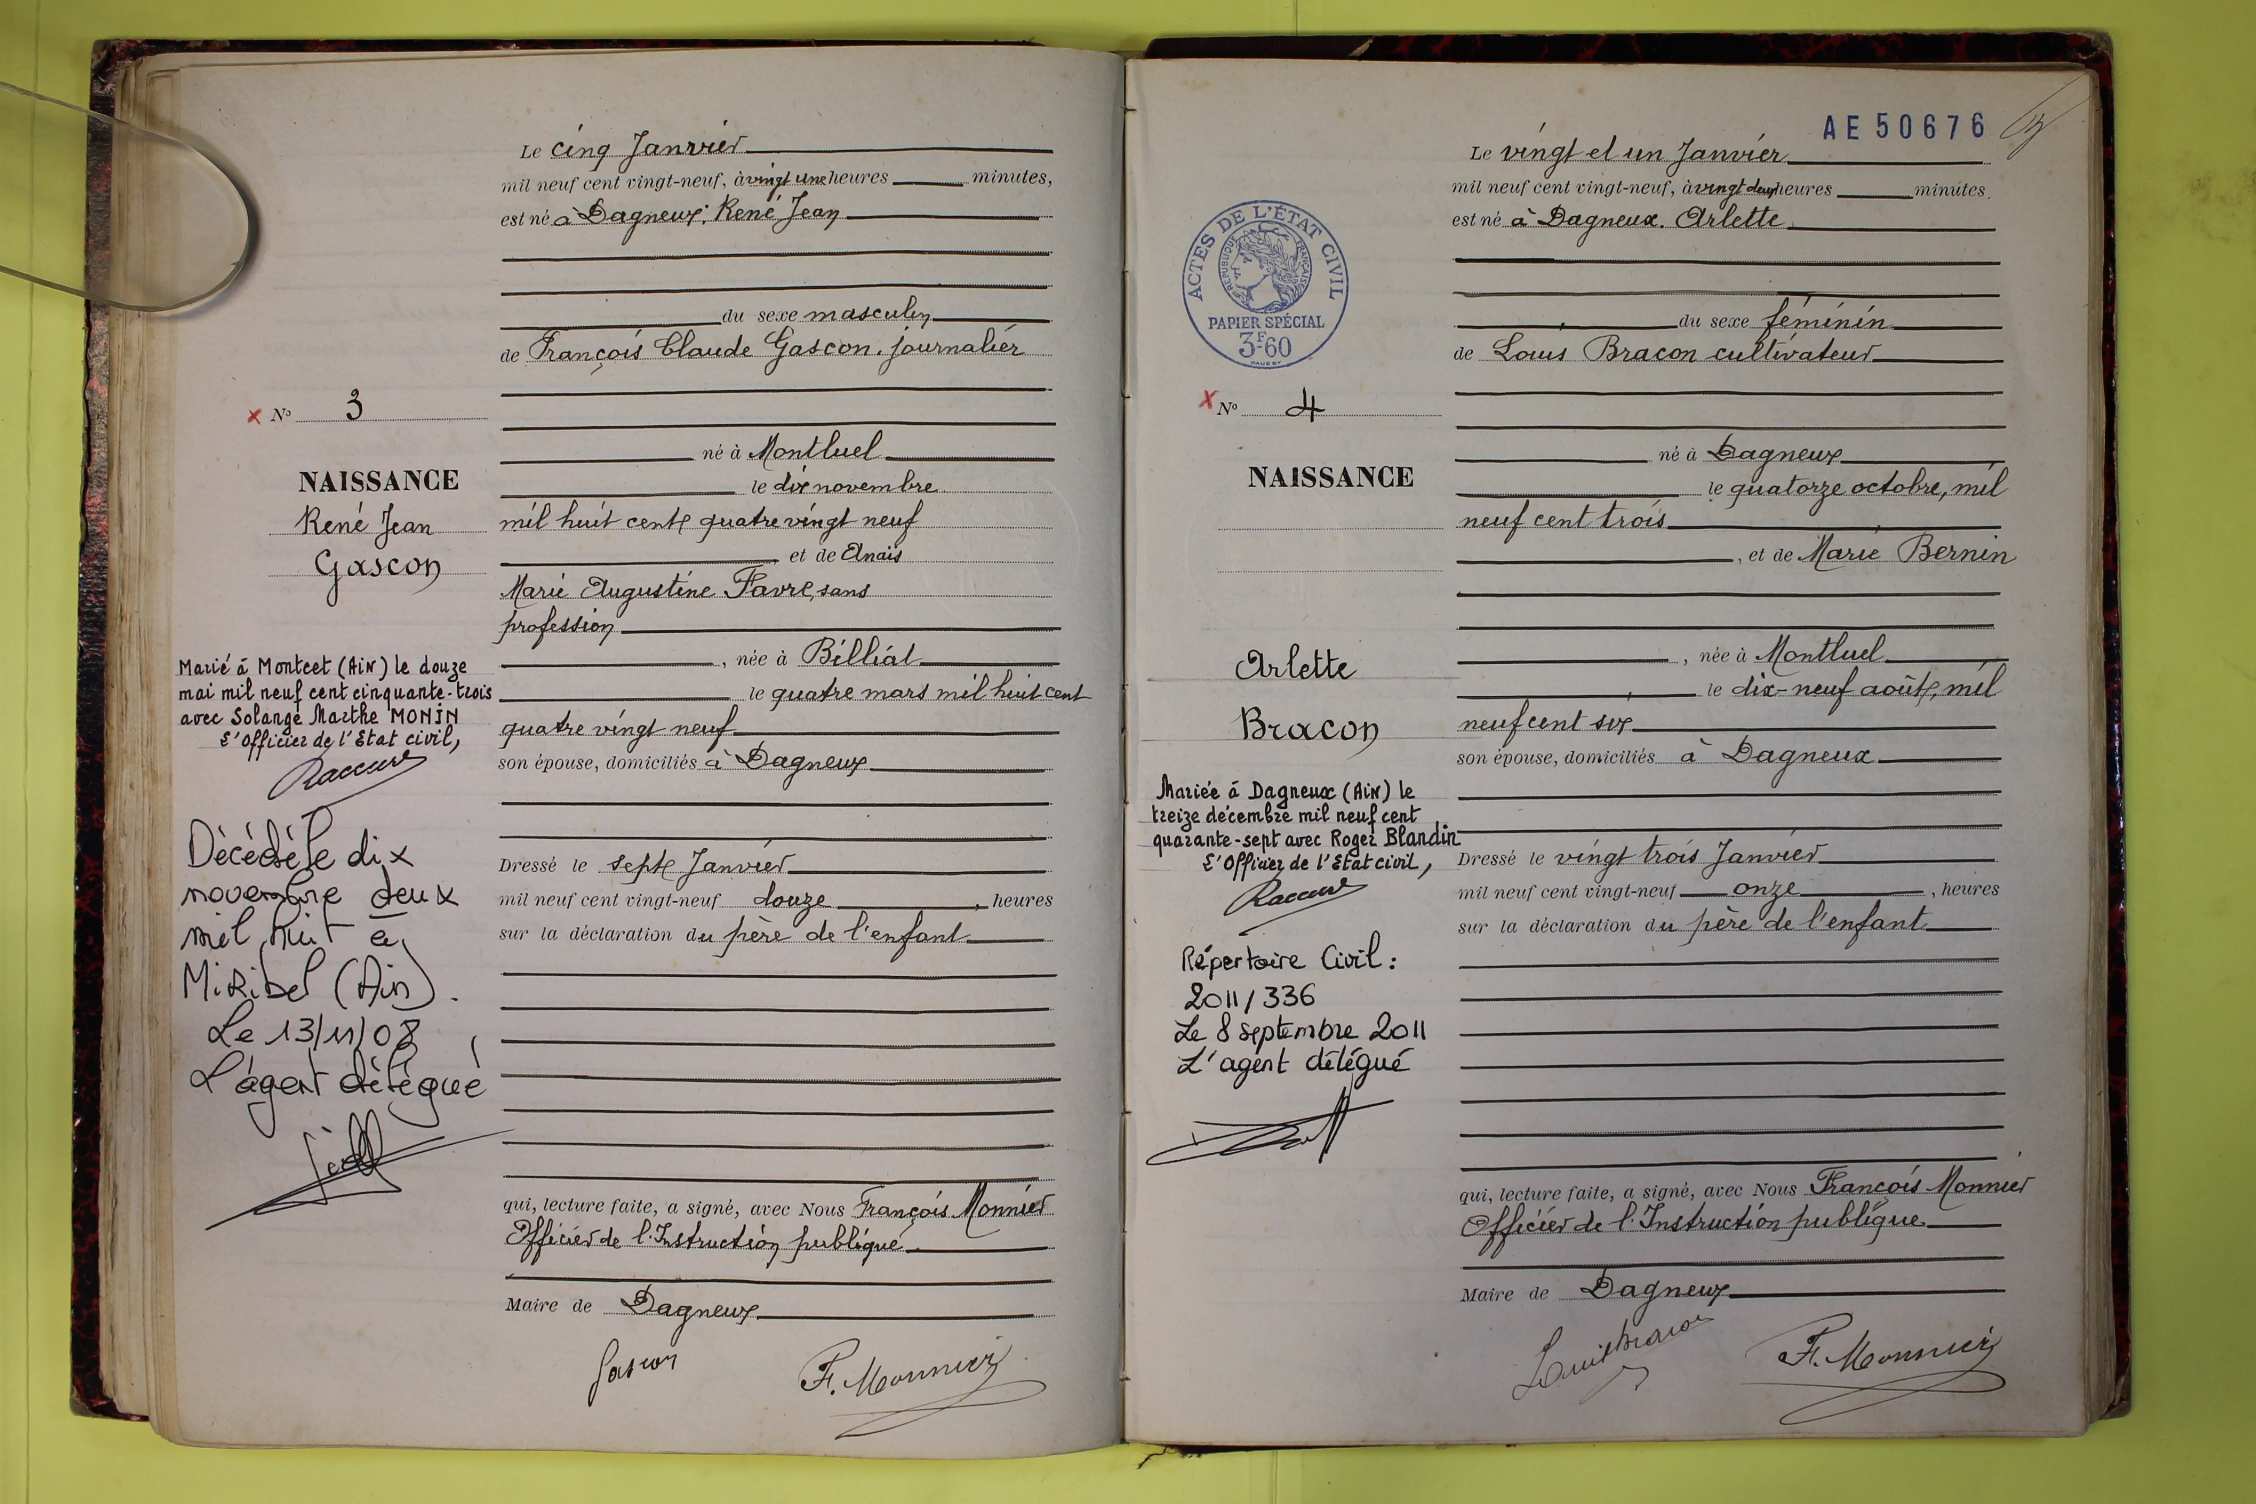 Le cinq Janvier
mil neuf cent vingt-neuf, à vingt une heures minutes,
est né à Dagneux. René Jean
du sexe masculin
de François Claude Gascon. journalier
× No 3
né à Montluel
NAISSANCE
le dix novembre
René Jean
mil huit cent quatre vingt neuf
Gascon
et de Anaïs
Marie Augustine Favre, sans
profession
Marié à Montcet (Ain) le douze
mai mil neuf cent cinquante-trois
avec Solange Marthe MONIN
L'Officier de l'Etat civil,
, née à Billiat
le quatre mars mil huit cent
quatre vingt neuf
son épouse, domiciliés à Dagneux
Décédé le dix
novembre deux
mil huit à
Miribel (Ain).
Le 13/11/08
L'agent délégué
Dressé le sept Janvier
mil neuf cent vingt-neuf douze, heures
sur la déclaration du père de l'enfant
qui, lecture faite, a signé, avec Nous François Monnier
Officier de l'Instruction publique
Maire de Dagneux
Gascon F. Monnier
AE 50676
Le vingt et un Janvier
mil neuf cent vingt-neuf, à vingt deux heures minutes.
est né à Dagneux. Arlette
ACTES DE L'ÉTAT CIVIL
RÉPUBLIQUE FRANÇAISE
PAPIER SPÉCIAL
3F60
du sexe féminin
de Louis Bracon cultivateur
× No 4
né à Dagneux
NAISSANCE
le quatorze octobre, mil
neuf cent trois
, et de Marie Bernin
Arlette
Bracon
, née à Montluel
le dix-neuf août, mil
neuf cent six
son épouse, domiciliés à Dagneux
Mariée à Dagneux (Ain) le
treize décembre mil neuf cent
quarante-sept avec Roger Blandin
L'Officier de l'Etat civil,
Répertoire Civil :
2011/336
Le 8 septembre 2011
L'agent délégué
Dressé le vingt trois Janvier
mil neuf cent vingt-neuf onze, heures
sur la déclaration du père de l'enfant
qui, lecture faite, a signé, avec Nous François Monnier
Officier de l'Instruction publique
Maire de Dagneux
Louis Bracon F. Monnier